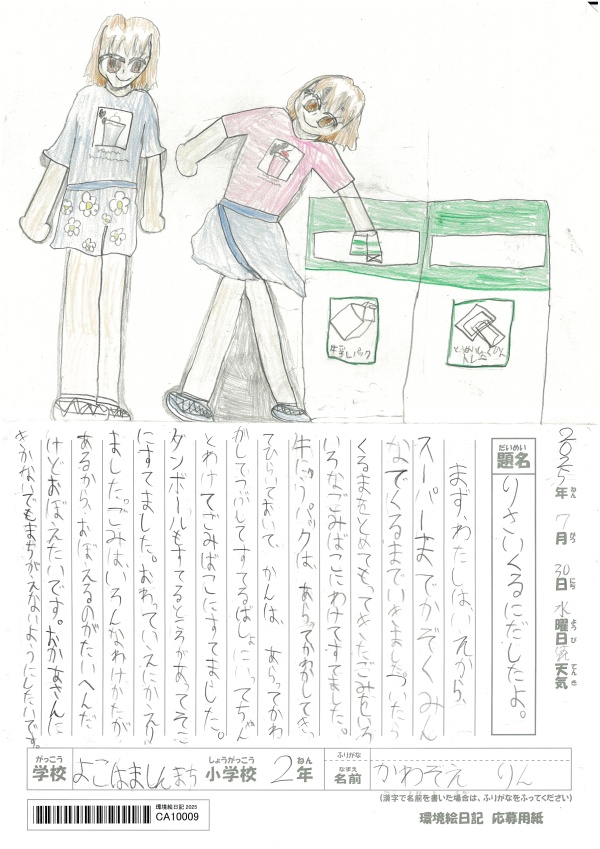 牛乳パック
トレー
2025年ねん 7月がつ 30日にち 水曜日ようび 天気てんき
題名だいめい
りさいくるにだしたよ。
まず、わたしはいえから、
スーパーまでかぞくみん
なでくるまでいきました。ついたら
くるまをとめてもってきたごみをいろ
いろなごみばこにわけてすてました。
牛にゅうパックは、あらってかわかしてき
てひらいておいて、かんは、あらってかわ
かしてつぶしてすてるばしょにいってちゃん
とわけてごみばこにすてました。
ダンボールもすてるところがあってそこ
にすてました。おわっていえにかえり
ました。ごみは、いろんなわけかたが
あるから、おぼえるのがたいへんだ
けどおぼえたいです。おかあさんに
きかないでもまちがえないようにしたいです。
がっこう
学校 よこはましんまち 小学校しょうがっこう 2年ねん
ふりがな
名前なまえ かわぞえ りん
(漢字で名前を書いた場合は、ふりがなをふってください)
環境絵日記 2025
CA10009
環境絵日記 応募用紙